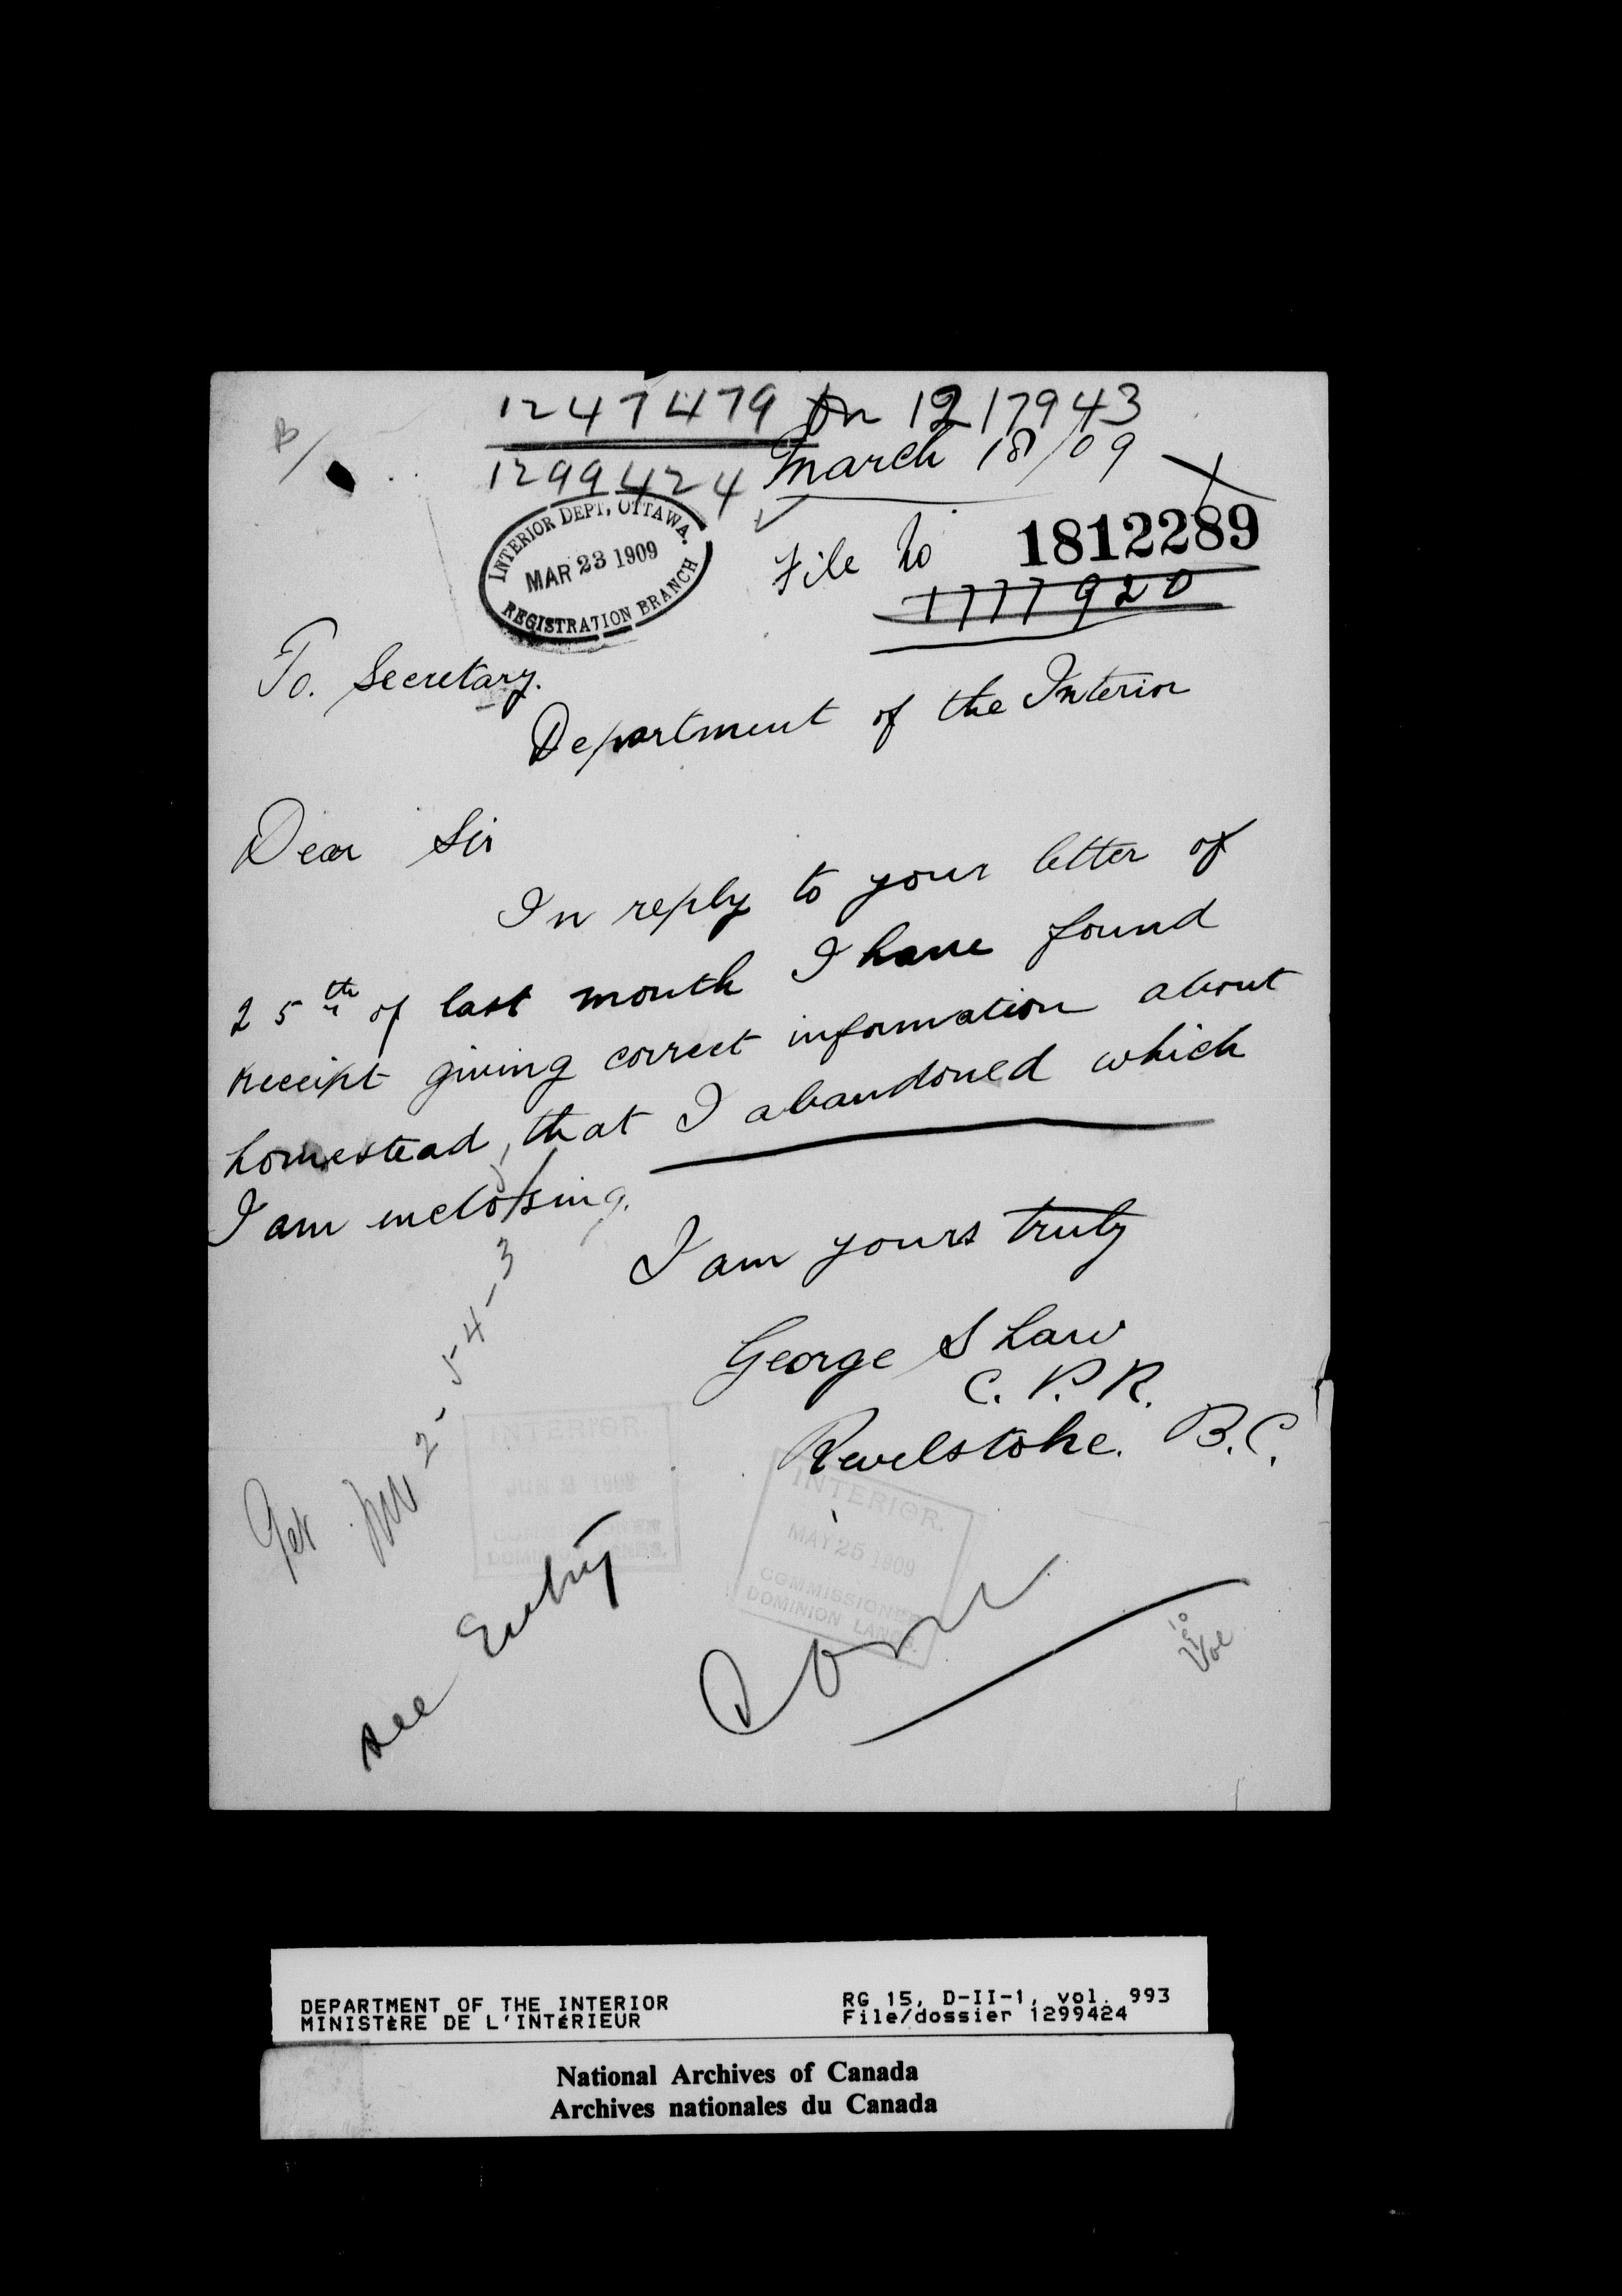 12 47479 on 1217943
1299424 March 18/09
INTERIOR DEPT, OTTAWA.
MAR 23 1909
REGISTRATION BRANCH
File No 1812289
1777920
To. Secretary.
Department of the Interior
Dear Sir
In reply to your letter of
25th of last month I have found
receipt giving correct information about
homestead, that I abandoned which
I am inclosing.
I am yours truly
George Shaw
C. P. R.
Revelstoke. B.C.
2-54-3
INTERIOR.
JUN 1909
COMMISSIONER
DOMINION LANDS.
INTERIOR.
MAY 25 1909
COMMISSIONER
DOMINION LANDS.
see Entry
DEPARTMENT OF THE INTERIOR
MINISTÈRE DE L'INTÉRIEUR
RG 15, D-II-1, vol. 993
File/dossier 1299424
National Archives of Canada
Archives nationales du Canada